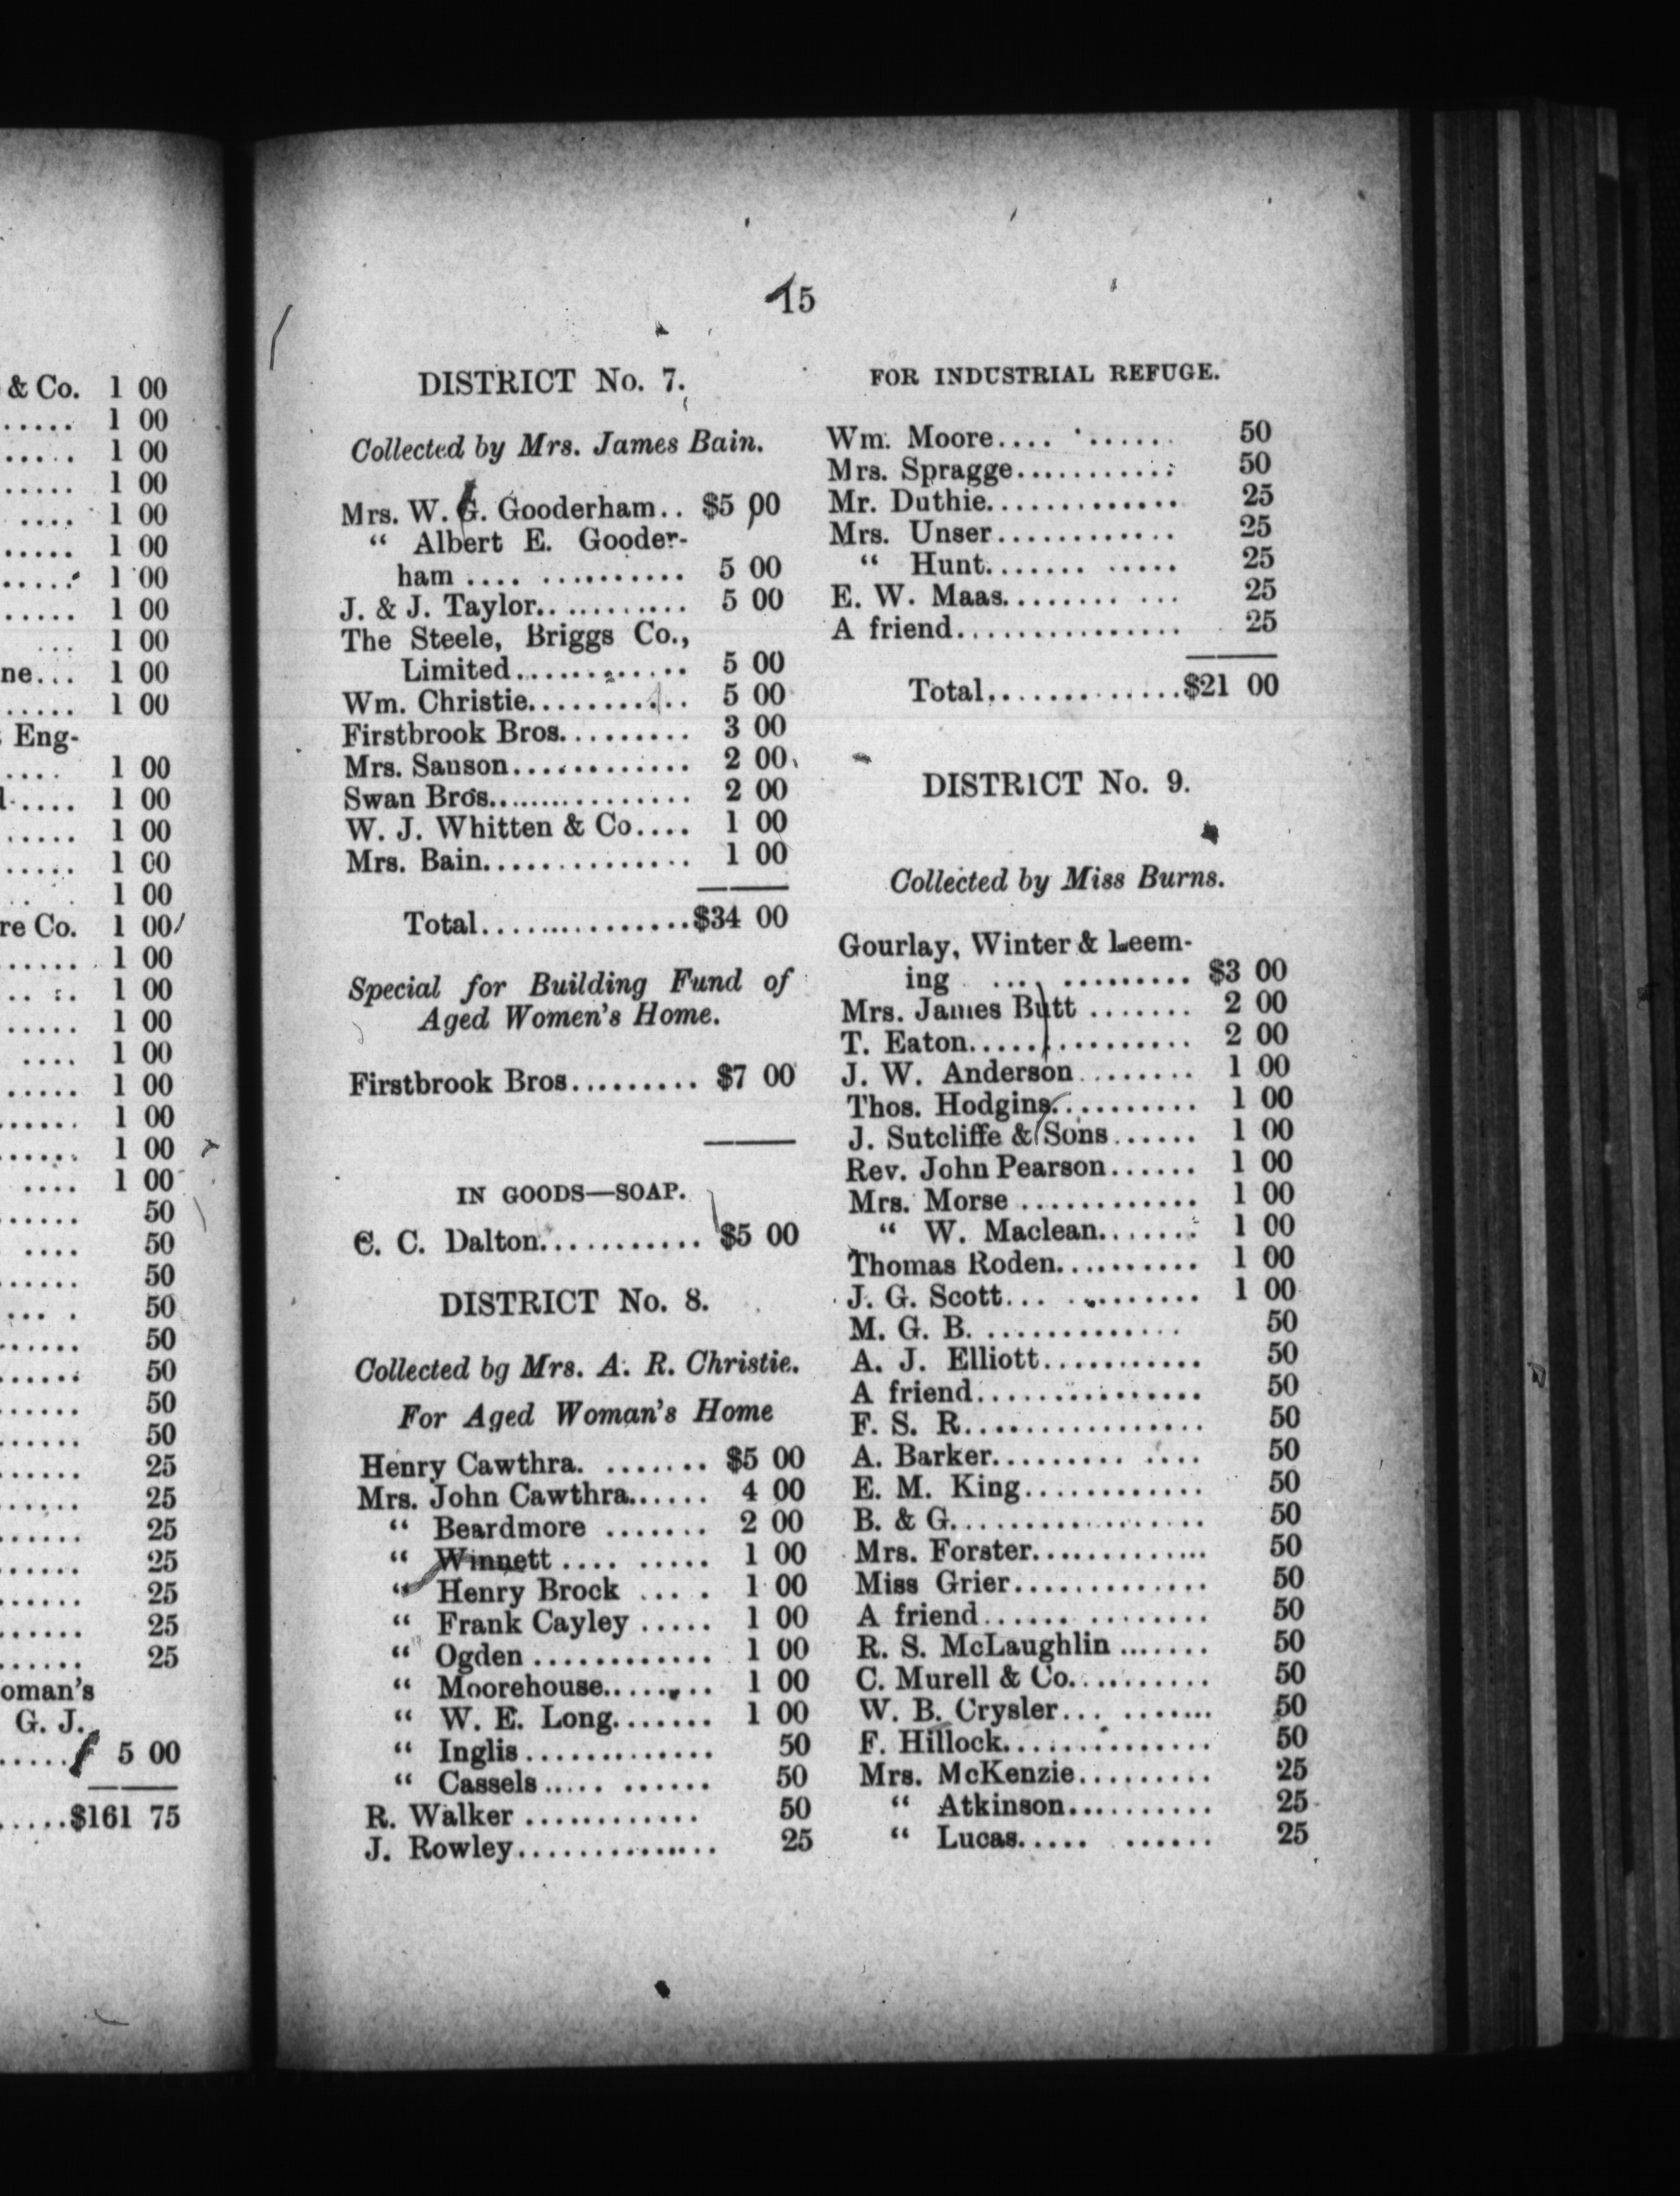 & Co. 1 00
..... 1 00
..... 1 00
..... 1 00
.... 1 00
..... 1 00
..... 1 00
..... 1 00
... 1 00
ne... 1 00
..... 1 00
Eng-
.... 1 00
.... 1 00
..... 1 00
..... 1 00
. . . 1 00
re Co. 1 00
..... 1 00
.... 1 00
..... 1 00
.... 1 00
..... 1 00
..... 1 00
..... 1 00
.... 1 00
..... 50
.... 50
..... 50
... . 50
..... 50
..... 50
..... 50
..... 50
..... 25
..... 25
..... 25
..... 25
..... 25
..... 25
..... 25
oman's
G. J.
..... 5 00
.....$161 75
15
DISTRICT No. 7.
Collected by Mrs. James Bain.
Mrs. W. G. Gooderham.. $5 00
“ Albert E. Gooder-
ham .... .......... 5 00
J. & J. Taylor............ 5 00
The Steele, Briggs Co.,
Limited............. 5 00
Wm. Christie............ 5 00
Firstbrook Bros.......... 3 00
Mrs. Sanson............. 2 00
Swan Bros................ 2 00
W. J. Whitten & Co.... 1 00
Mrs. Bain............... 1 00
Total................$34 00
Special for Building Fund of
Aged Women's Home.
Firstbrook Bros......... $7 00
IN GOODS—SOAP.
C. C. Dalton............ $5 00
DISTRICT No. 8.
Collected bg Mrs. A. R. Christie.
For Aged Woman's Home
Henry Cawthra. ....... $5 00
Mrs. John Cawthra...... 4 00
“ Beardmore ....... 2 00
“ Winnett .... ..... 1 00
“ Henry Brock .... . 1 00
“ Frank Cayley ..... 1 00
“ Ogden ............ 1 00
“ Moorehouse........ 1 00
“ W. E. Long....... 1 00
“ Inglis ............. 50
“ Cassels ..... ...... 50
R. Walker ............ 50
J. Rowley.............. 25
FOR INDUSTRIAL REFUGE.
Wm. Moore.... ...... 50
Mrs. Spragge........... 50
Mr. Duthie............. 25
Mrs. Unser............ 25
“ Hunt....... ..... 25
E. W. Maas........ ... 25
A friend............... 25
Total..............$21 00
DISTRICT No. 9.
Collected by Miss Burns.
Gourlay, Winter & Leem-
ing ... ......... $3 00
Mrs. James Butt ....... 2 00
T. Eaton............... 2 00
J. W. Anderson........ 1 00
Thos. Hodgins.......... 1 00
J. Sutcliffe & Sons...... 1 00
Rev. John Pearson...... 1 00
Mrs. Morse ............ 1 00
“ W. Maclean....... 1 00
Thomas Roden.......... 1 00
J. G. Scott... ........ 1 00
M. G. B. .............. 50
A. J. Elliott........... 50
A friend............... 50
F. S. R................. 50
A. Barker......... .... 50
E. M. King............ 50
B. & G................. 50
Mrs. Forster............. 50
Miss Grier............. 50
A friend...... ........ 50
R. S. McLaughlin ....... 50
C. Murell & Co.......... 50
W. B. Crysler... ....... 50
F. Hillock.............. 50
Mrs. McKenzie......... 25
“ Atkinson.......... 25
“ Lucas..... ...... 25